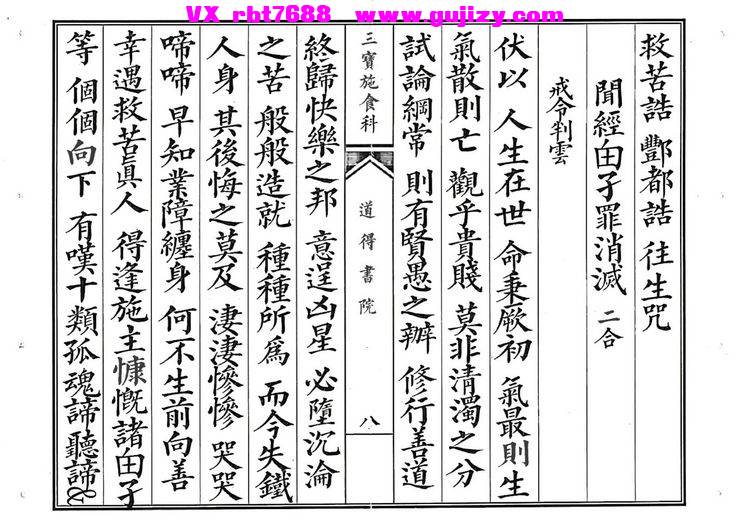 VX rbt7688 www.gujizy.com
救苦誥 酆都誥 往生咒
聞經甶子罪消滅 二合
戒令判雲
伏以 人生在世 命秉厥初 氣最則生
氣散則亡 觀乎貴賤 莫非清濁之分
試論綱常 則有賢愚之辦 修行善道
三寶施食科 道得書院 八
終歸快樂之邦 意逞凶星 必墮沉淪
之苦 般般造就 種種所為 而今失鐵
人身 其後悔之莫及 淒淒慘慘 哭哭
啼啼 早知業障纏身 何不生前向善
幸遇救苦眞人 得逢施主慷慨諸甶子
等 個個向下 有嘆十類孤魂諦聽諦